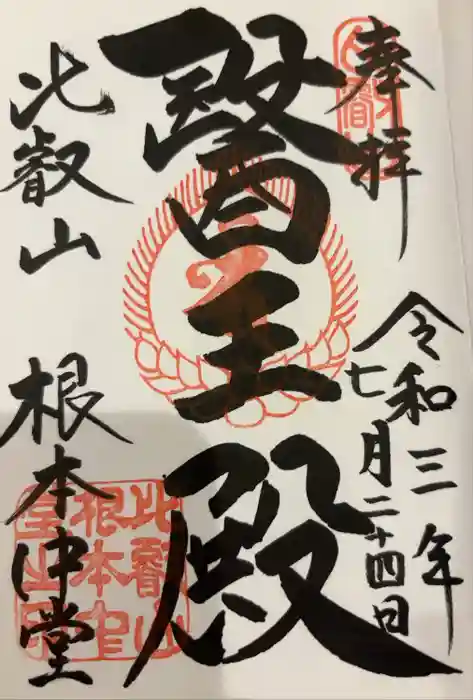 奉拝
令和三年
七月二十四日
醫王殿
比叡山
根本中堂
比叡山
根本中
堂之印